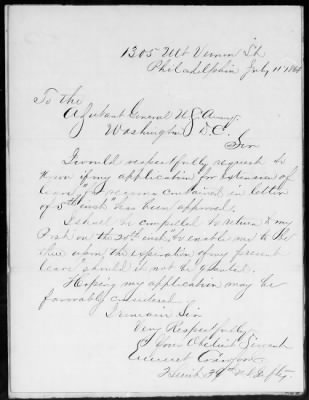 1305 Mt Vernon St
Philadelphia July 11" 1864
To the
Adjutant General U S Army
Washington D.C.
Sir
I would respectfully request to
know if my application for extension of
leave for reasons contained in letter
of 5th inst. has been approved.
I shall be compelled to return to my
Post on the 20th inst. to enable me to be
there upon the expiration of my present
leave should it not be granted.
Hoping my application may be
favorably considered
I remain Sir
Very Respectfully
Your Obedient Servant
Emmet Crawford
2d Lieut 39th U.S. Infty.